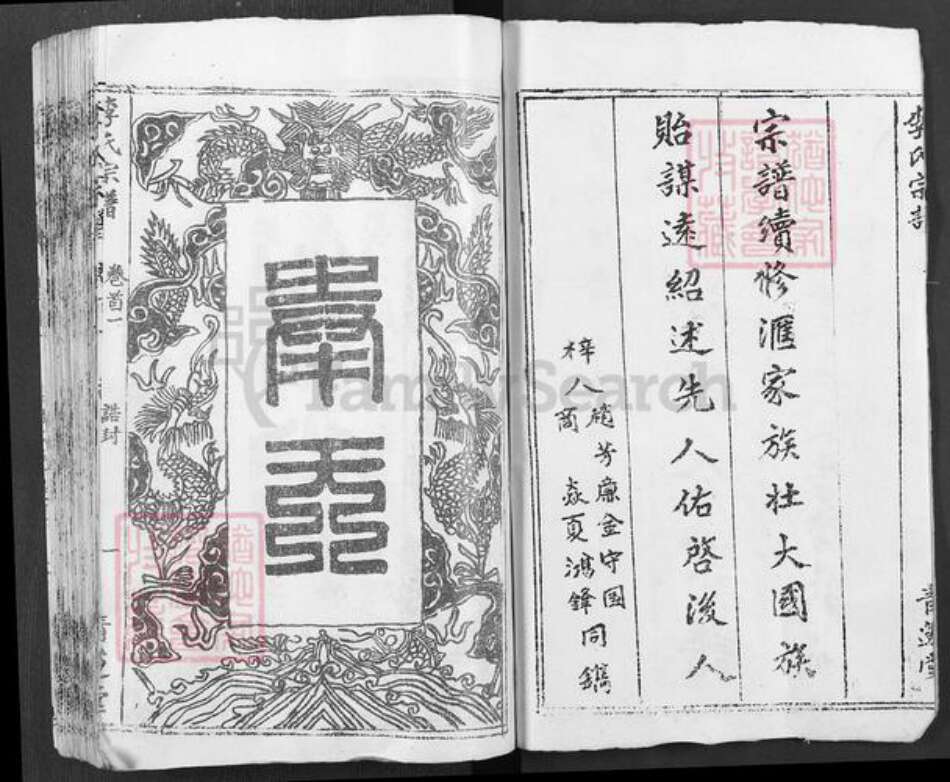 李氏宗譜
宗譜續修滙家族壯大國族
貽謀遠紹述先人佑啓後人
梓人
芳廉金守國
夏鴻鋒同鐫
奉天
李氏宗譜
卷首一
誥封
一
青蓮堂
TamarSearch